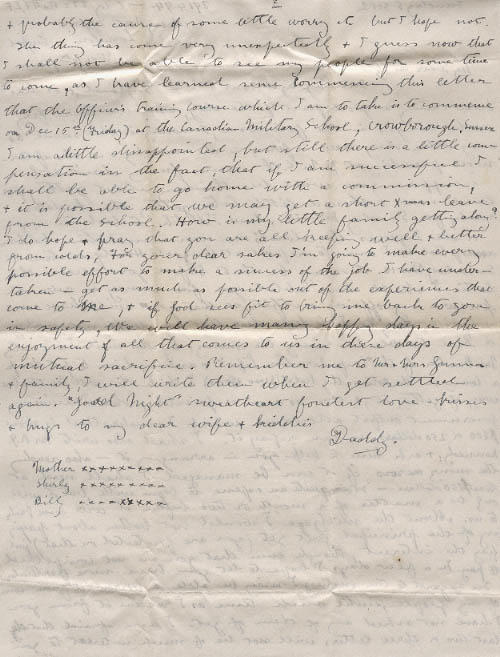 2
& probably the cause of some little worry it but I hope not.
This thing has come very unexpectedly & I guess now that
I shall not be able to see my people for some time
to come, as I have learned since commencing this letter
that the Officers training course which I am to take is to commence
on Dec 15th (Friday) at the Canadian Military School, Crowborough, Sussex
I am a little disappointed, but still there is a little com-
pensation in the fact, that if I am successful I
shall be able to go home with a commission,
& it is possible that we may get a short Xmas leave
from the School. How is my little family getting along?
I do hope & pray that you are all keeping well & better
from colds, For your dear sakes I'm going to make every
possible effort to make a success of the job I have under-
taken – get as much as possible out of the experiences that
come to me, & if God sees fit to bring me back to you
in safety, we will have many happy days in the
enjoyment of all that comes to us in these days of
mutual sacrifice. Remember me to Mr & Mrs
& family, I will write them when I get settled
again. "Good Night" sweetheart fondest love kisses
& hugs to my dear wife & kiddies
Daddy.
Mother xxxxxxxxx
Shirly xxxxxxxxx
Billy xxxxxxxxx